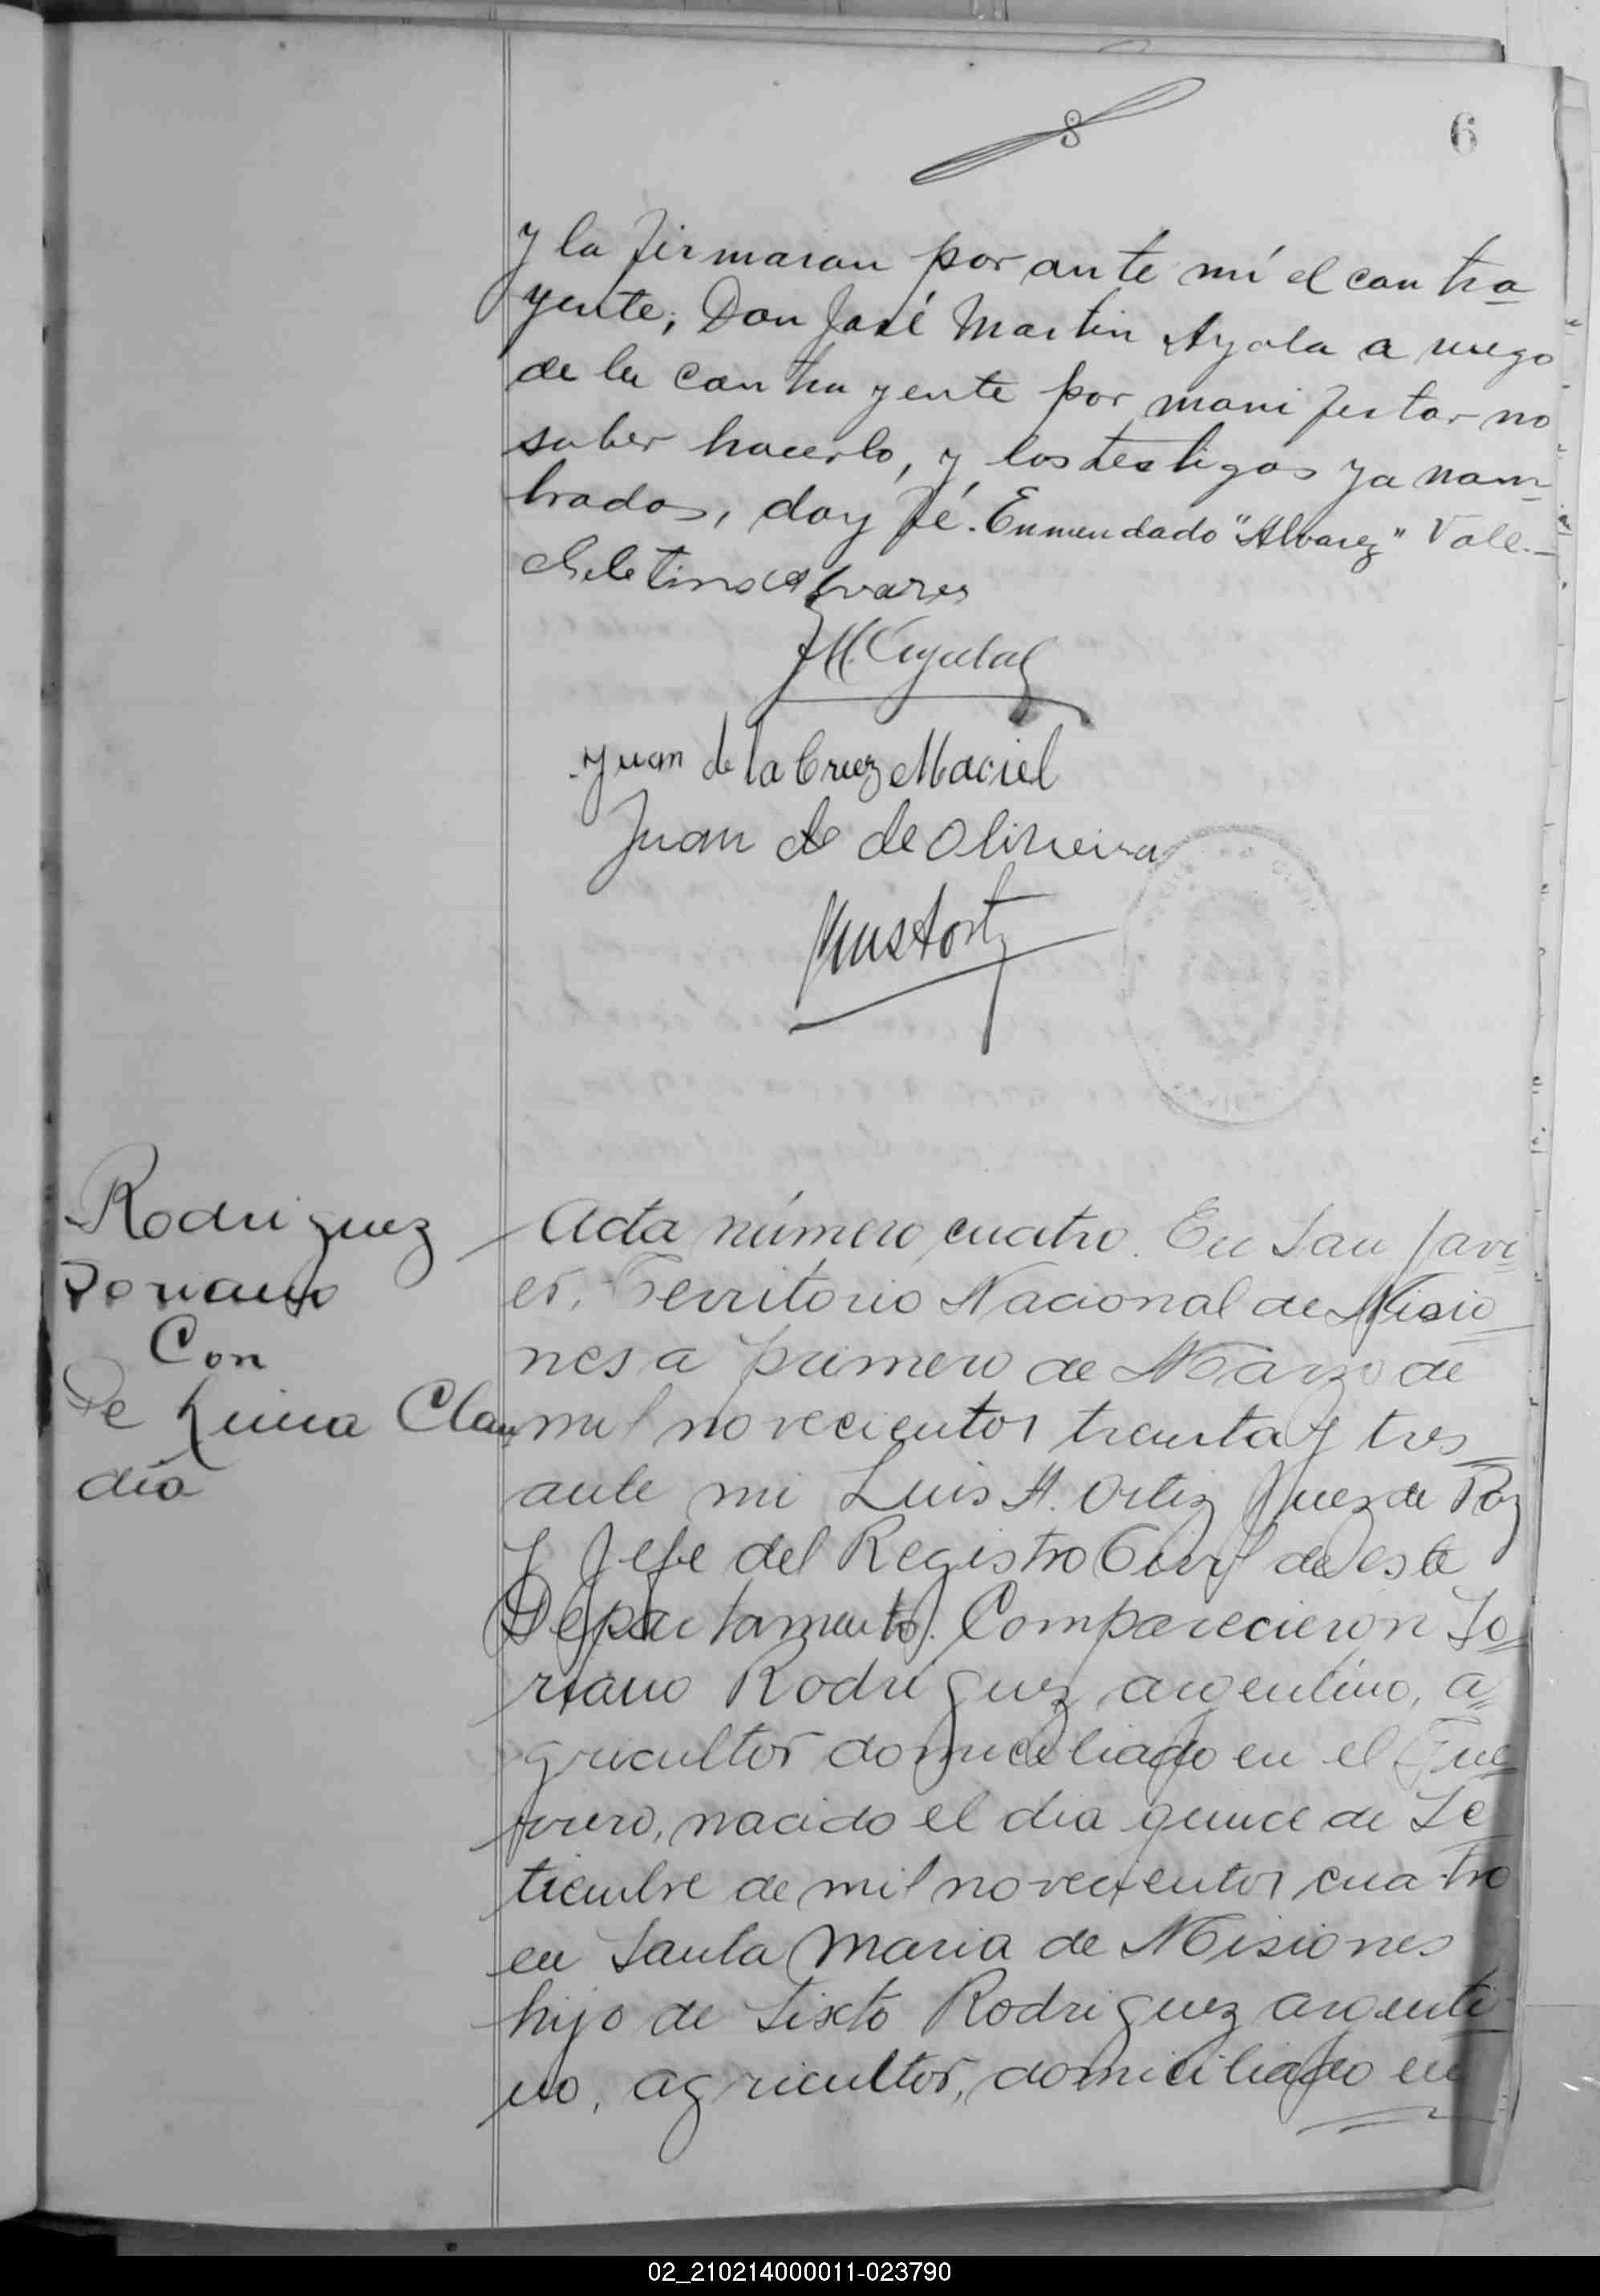 8
6
y la firmaran por ante mí el contra
yente, Don José Martin Ayala a ruego
de la contrayente por manifestar no
saber hacerlo, y los testigos ya nom
brados, doy fé. Enmendado "Alvarez" Vale.—
Seletino Alvares
J M Ayala
Juan de la Cruz Maciel
Juan de Oliveira
Luis A Ortiz
Rodriguez
Soriano
Con
De Lima Clau
dia
Acta número cuatro. En San Javi
er, Territorio Nacional de Misio
nes a primero de Marzo de
mil novecientos treinta y tres
ante mi Luis A. Ortiz Juez de Paz
y Jefe del Registro Civil de este
Departamento. Comparecieron So
riano Rodriguez argentino, a
gricultor domiciliado en el
nacido el dia quince de Se
tiembre de mil novecientos cuatro
en Santa Maria de Misiones
hijo de Sixto Rodriguez argenti
no, agricultor, domiciliado en
02_210214000011-023790